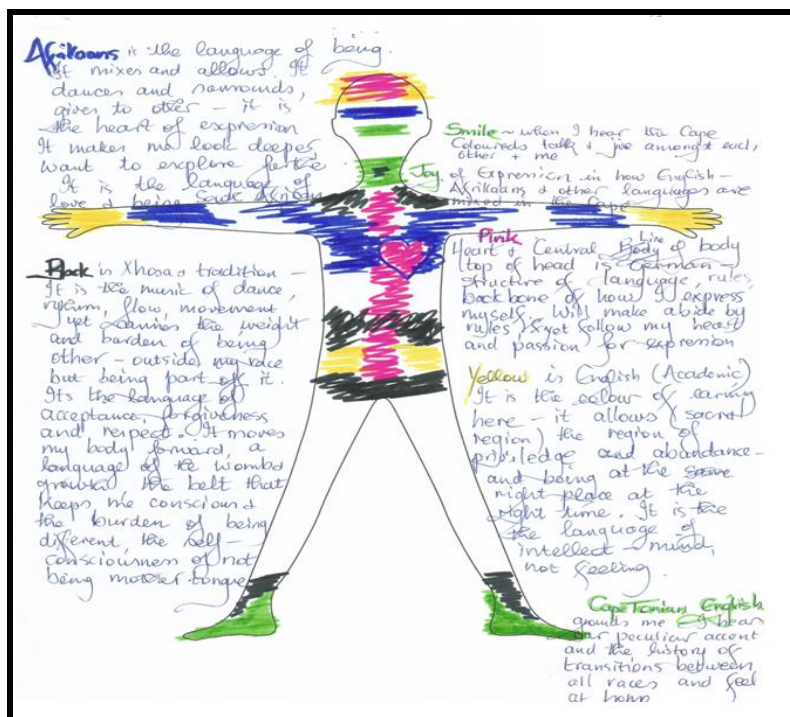 Afrikaans is the language of being.
It mixes and allows. It
dances and surrounds,
gives to other – it is
the heart of expression
It makes me look deeper,
want to explore further
It is the language of
love & being South African
Smile – when I hear the Cape
Coloureds talk & jive amongst each
other + me
Joy of Expression in how English –
Afrikaans & other languages are
mixed in the Cape
Pink
Heart & Central Body Line of body
top of head is German –
structure of language, rules,
backbone of how I express
myself. Will make abide by
rules, & yet follow my heart
and passion for expression
Black is Xhosa & tradition –
It is the music of dance,
rythm, flow, movement
yet carries the weight
and burden of being
other – outside my race
but being part of it.
Its the language of
acceptance, forgiveness
and respect. It moves
my body forward, a
language of the womb &
the belt that
keeps me conscious &
the burden of being
different, the self–
consciousness of not
being mother tongue
Yellow is English (Academic)
It is the colour of earning
here – it allows (sacral
region) the region of
priviledge and abundance –
and being at the same
right place at the
right time. It is the
the language of
intellect – mind,
not feeling.
CapeTonian English
grounds me I hear
our peculiar accent
and the history of
transitions between
all races and feel
at home